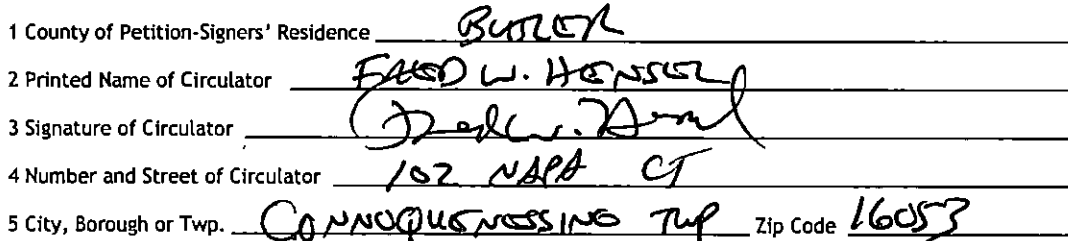 1 County of Petition-Signers' Residence BUTLER
2 Printed Name of Circulator FRED W. HENSEL
3 Signature of Circulator Fred W. Hensel
4 Number and Street of Circulator 102 NAPA CT
5 City, Borough or Twp. CONNOQUENESSING TWP Zip Code 16053